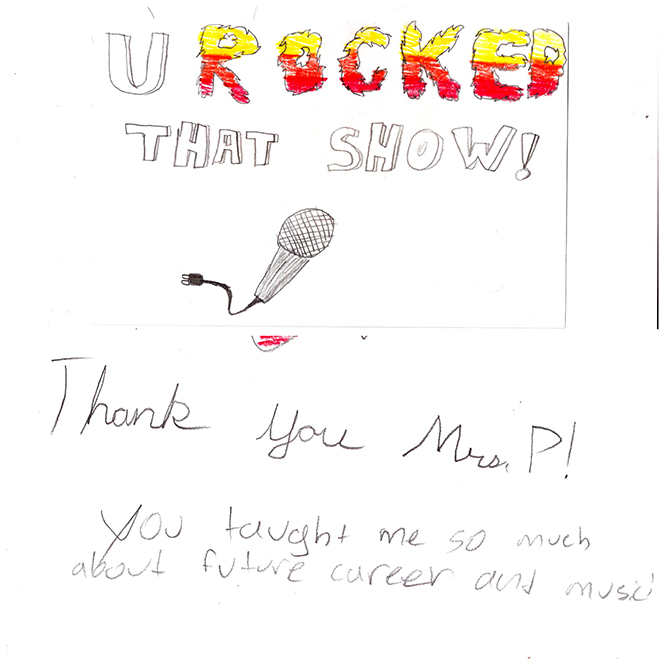 U ROCKED
THAT SHOW!
Thank You Mrs. P!
You taught me so much
about future career and music